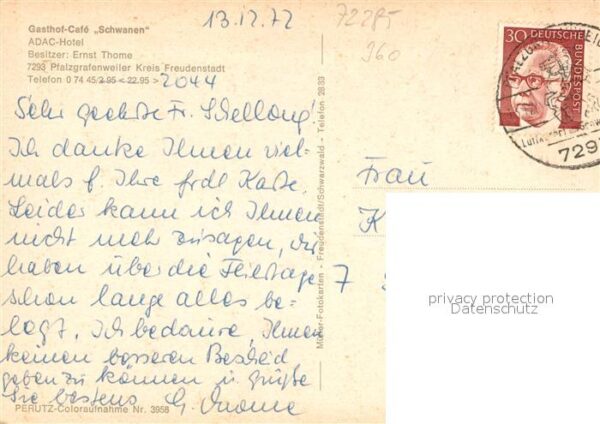 13.12.72
72285
960
Gasthof-Café „Schwanen"
ADAC-Hotel
Besitzer: Ernst Thome
7293 Pfalzgrafenweiler Kreis Freudenstadt
Telefon 0 74 45/2 95 < 22 95 > 2044
Sehr geehrte Fr. Schellong!
Ich danke Ihnen viel-
mals f. Ihre frdl Karte.
Leider kann ich Ihnen
nicht mehr zusagen, wir
haben über die Feiertage
schon lange alles be-
legt. Ich bedaure, Ihnen
keinen besseren Bescheid
geben zu können u. grüße
Sie bestens G. Thome
PERUTZ-Coloraufnahme Nr. 3958
Fotokarten - Freudenstadt/Schwarzwald - Telefon 28 33
30 DEUTSCHE
BUNDESPOST
729
Frau
K
7
privacy protection
Datenschutz